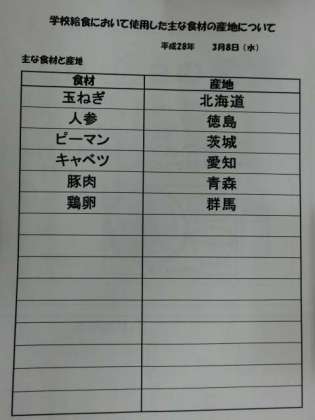 学校給食において使用した主な食材の産地について
平成28年 3月8日（水）
主な食材と産地
食材 産地
玉ねぎ 北海道
人参 徳島
ピーマン 茨城
キャベツ 愛知
豚肉 青森
鶏卵 群馬